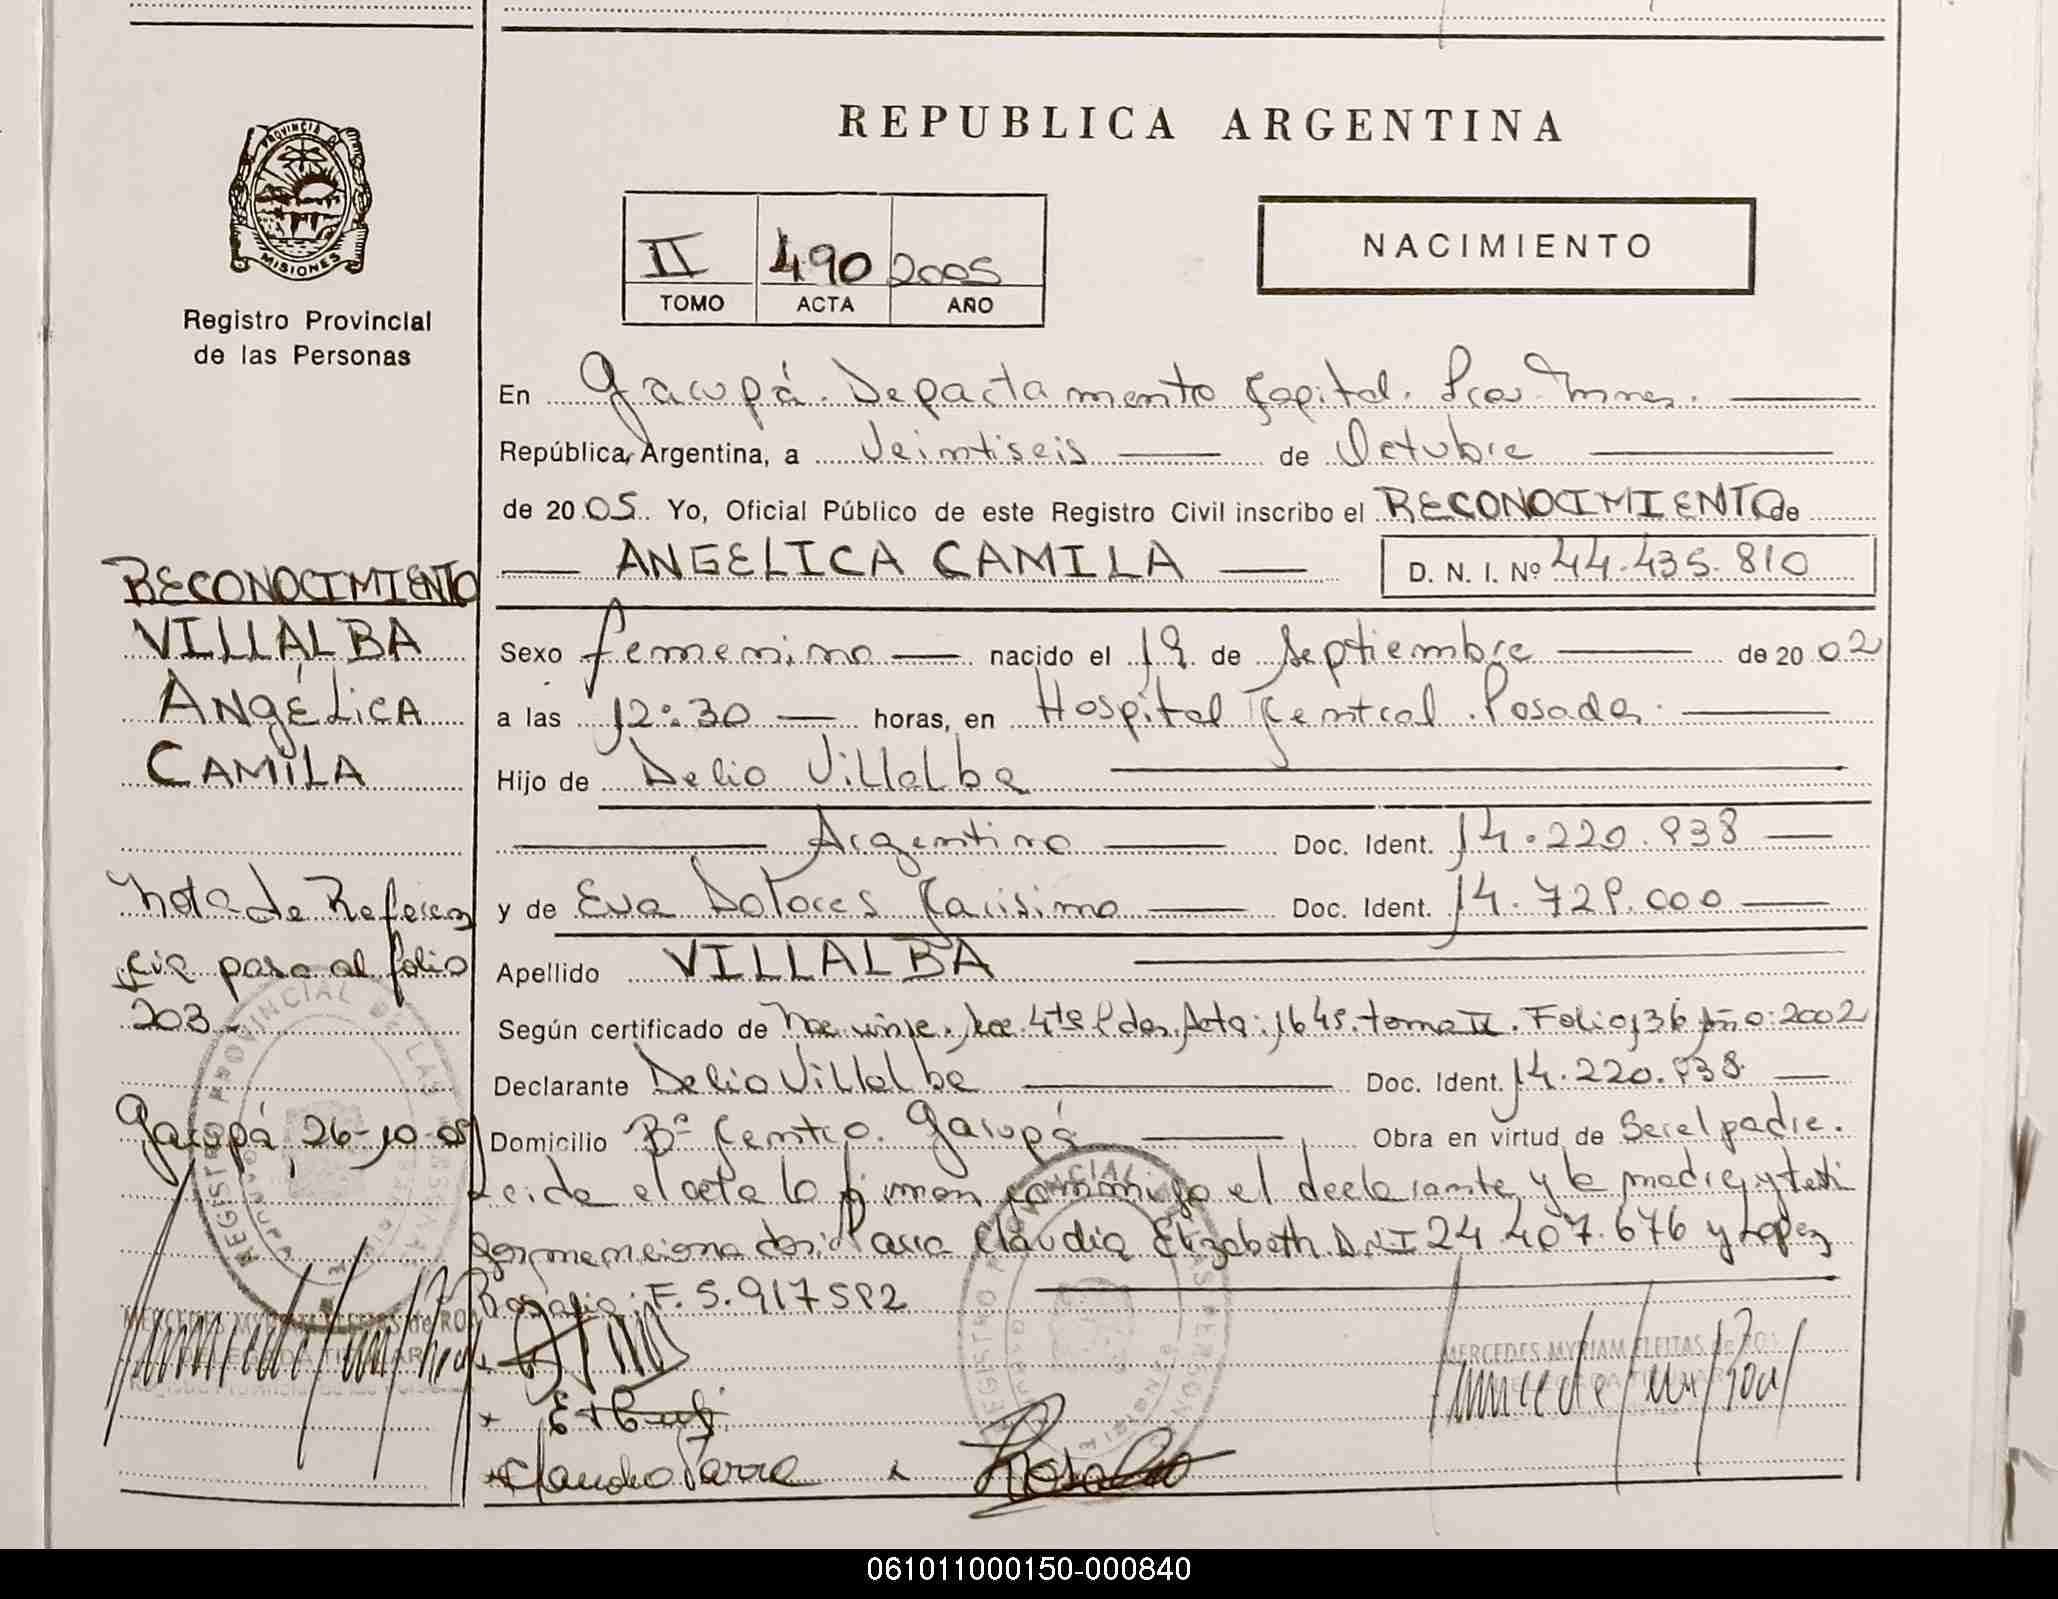 REPUBLICA ARGENTINA
PROVINCIA DE
MISIONES
Registro Provincial
de las Personas
II 490 2005
TOMO ACTA AÑO
NACIMIENTO
En Garupá. Departamento Capital. Pcia. Mnes.
República Argentina, a Veintiseis de Octubre
de 2005. Yo, Oficial Público de este Registro Civil inscribo el RECONOCIMIENTO de
ANGELICA CAMILA D. N. I. Nº 44.435.810
Sexo femenino nacido el 19 de Septiembre de 2002
a las 12:30 horas, en Hospital Central. Posadas.
Hijo de Delio Villalba
Argentino Doc. Ident. 14.220.938
y de Eva Dolores Doc. Ident. 14.729.000
Apellido VILLALBA
Según certificado de Acta: 1645. tomo II. Folio 136 Año: 2002
Declarante Delio Villalba Doc. Ident. 14.220.938
Domicilio Bº Centro. Garupá Obra en virtud de Ser el padre.
Leida el acta la firman conmigo el declarante y la madre y testi
gos mencionados: Parra Claudia Elizabeth DNI 24.407.676 y Lopez
Rosalia: F. 5.917592
RECONOCIMIENTO
VILLALBA
ANGÉLICA
CAMILA
Nota de Referen
cia pasa al folio
203
Garupá, 26-10-05
REGISTRO PROVINCIAL DE LAS PERSONAS
MERCEDES MYRIAM FLEITAS de ROA
DELEGADA TITULAR
Claudia Parra
REGISTRO PROVINCIAL DE LAS PERSONAS
MERCEDES MYRIAM FLEITAS de ROA
061011000150-000840